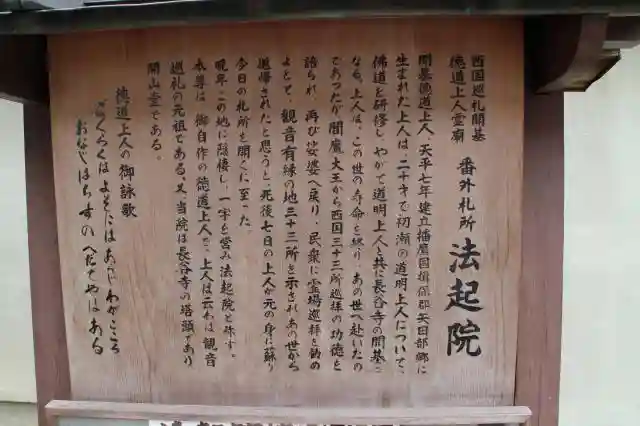 西国巡礼開基
徳道上人霊廟
番外札所 法起院
開基徳道上人、天平七年建立播磨国揖保郡矢田部郷に
生まれた上人は、二十才で初瀬の道明上人について、
佛道を研修し、やがて道明上人と共に長谷寺の開基と
なる。上人は、この世の寿命を終り、あの世へ赴いたの
であったが閻魔大王から西国三十三所巡拝の功徳を
語られ、再び娑婆へ戻り、民衆に霊場巡拝を勧め
よとて、観音有縁の地三十三所を示されあの世から
追帰されたと思うと、死後七日の上人が元の身に蘇り
今日の札所を開くに至った。
晩年この地に隠棲し、一宇を営み法起院と称す。
本尊は、御自作の徳道上人で、上人は云わば観音
巡礼の元祖である。又、当院は長谷寺の塔頭であり
開山堂である。
徳道上人の御詠歌
ごくらくはよそにはあらじわがこころ
おなじはちすのへだてやはある